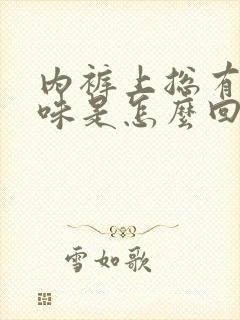 内裤上总有
味是怎麼回
雪如歌